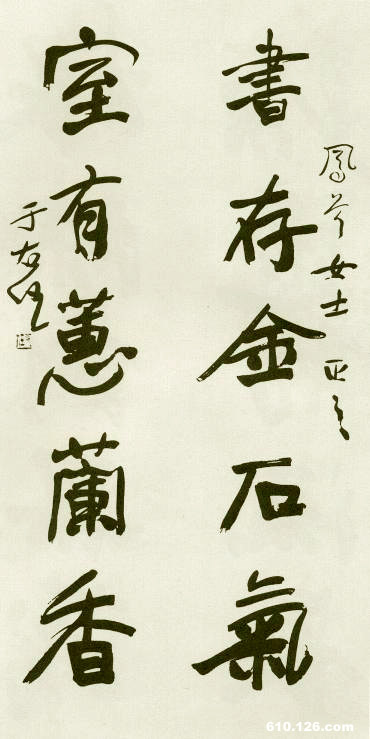 鳳 女士 正之
書存金石氣
室有蕙蘭香
于右任
610.126.com